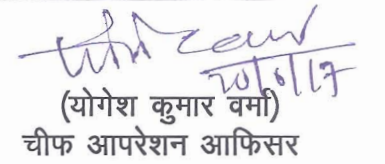 20/6/17
(योगेश कुमार वर्मा)
चीफ आपरेशन आफिसर